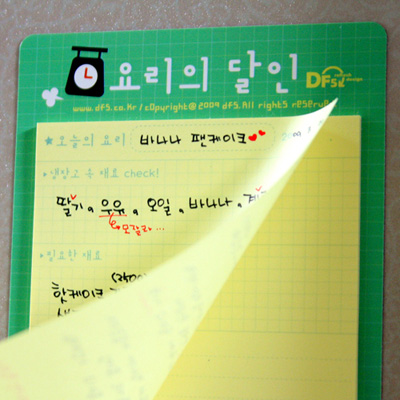 요리의 달인
www.dfs.co.kr / copyright@ 2009 dfs.All rights reserve
★오늘의 요리 바나나 팬케이크
냉장고 속 재료 check!
딸기, 우유, 오일, 바나나,
모자라...
필요한 재료
핫케이크